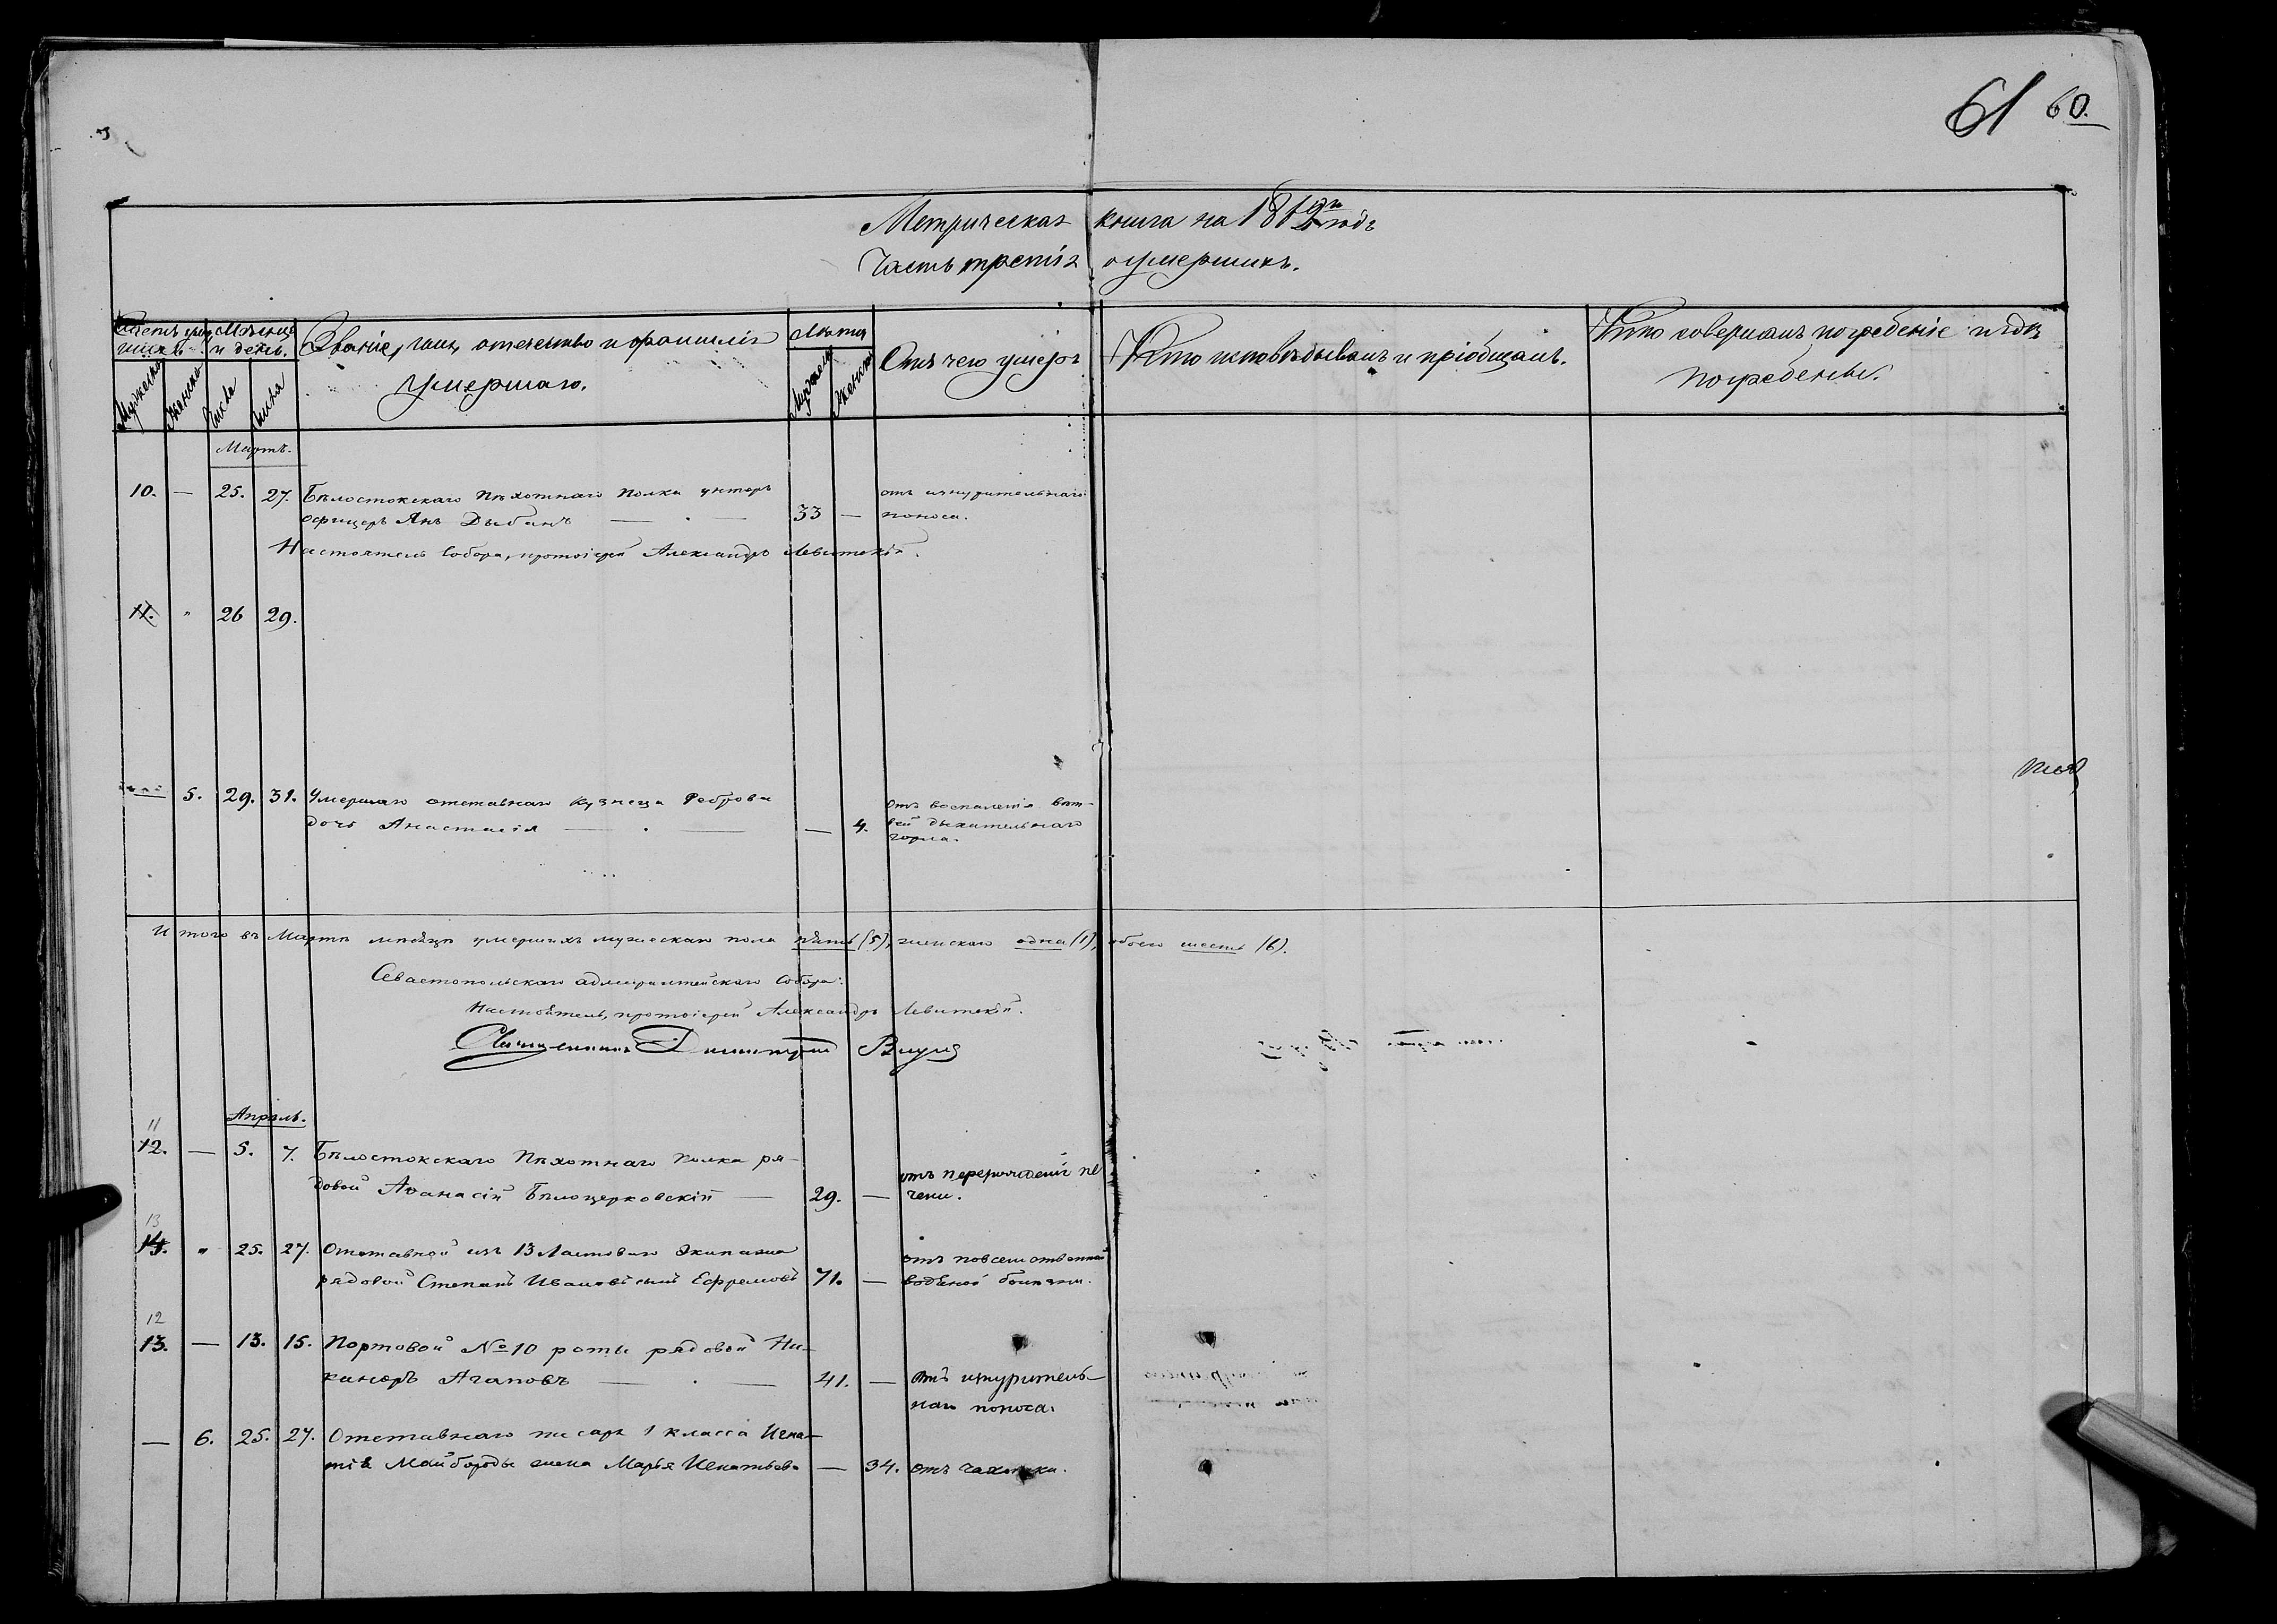 61 60.
Метрическая книга на годъ
Часть третія о умершихъ.
Счетъ умер Мѣсяцъ Званіе, имя, отечество и фамилія Лѣта Отъ чего умеръ Кто исповѣдывалъ и пріобщалъ. Кто совершалъ погребеніе и гдѣ
шихъ и день. умершаго. погребены.
Мужеска Женска Числа Числа Мужеска Женска
Мартъ.
10. — 25. 27. Бѣлостокскаго Пѣхотнаго полка унтеръ отъ изнурительнаго
офицеръ Янъ Дыбанъ — . — 33 — поноса.
Настоятель Собора, протоіерей Александръ Левитскій.
11. " 26 29.
— 5. 29. 31. Умершаго отставнаго кузнеца Реброва отъ воспаленія вѣт-
дочь Анастасія — . — — 4. вей дыхательнаго
горла.
Итого въ Мартѣ мѣсяцѣ умершихъ мужескаго пола пять (5), женскаго одна (1), обоего шесть (6).
Севастопольскаго адмиралтейскаго Собора:
Настоятель, протоіерей Александръ Левитскій.
Священникъ Димитрій
Апрѣль.
11
12. — 5. 7. Бѣлостокскаго Пѣхотнаго полка ря-
довой Аѳанасій Бѣлоцерковскій — 29. — отъ перерожденія пе
чени.
13
14. " 25. 27. Отставной изъ 13 Ластоваго Экипажа отъ повсемѣстной
рядовой Степанъ Ивановъ сынъ Ефремовъ 71. — водяной болѣзни.
12
13. — 13. 15. Портовой № 10 роты рядовой Ни-
каноръ Агаповъ — . — 41. — отъ изнуритель-
наго поноса.
— 6. 25. 27. Отставнаго писаря 1 класса Игна-
тія Майбороды жена Марья Игнатьева — 34. отъ чахотки.